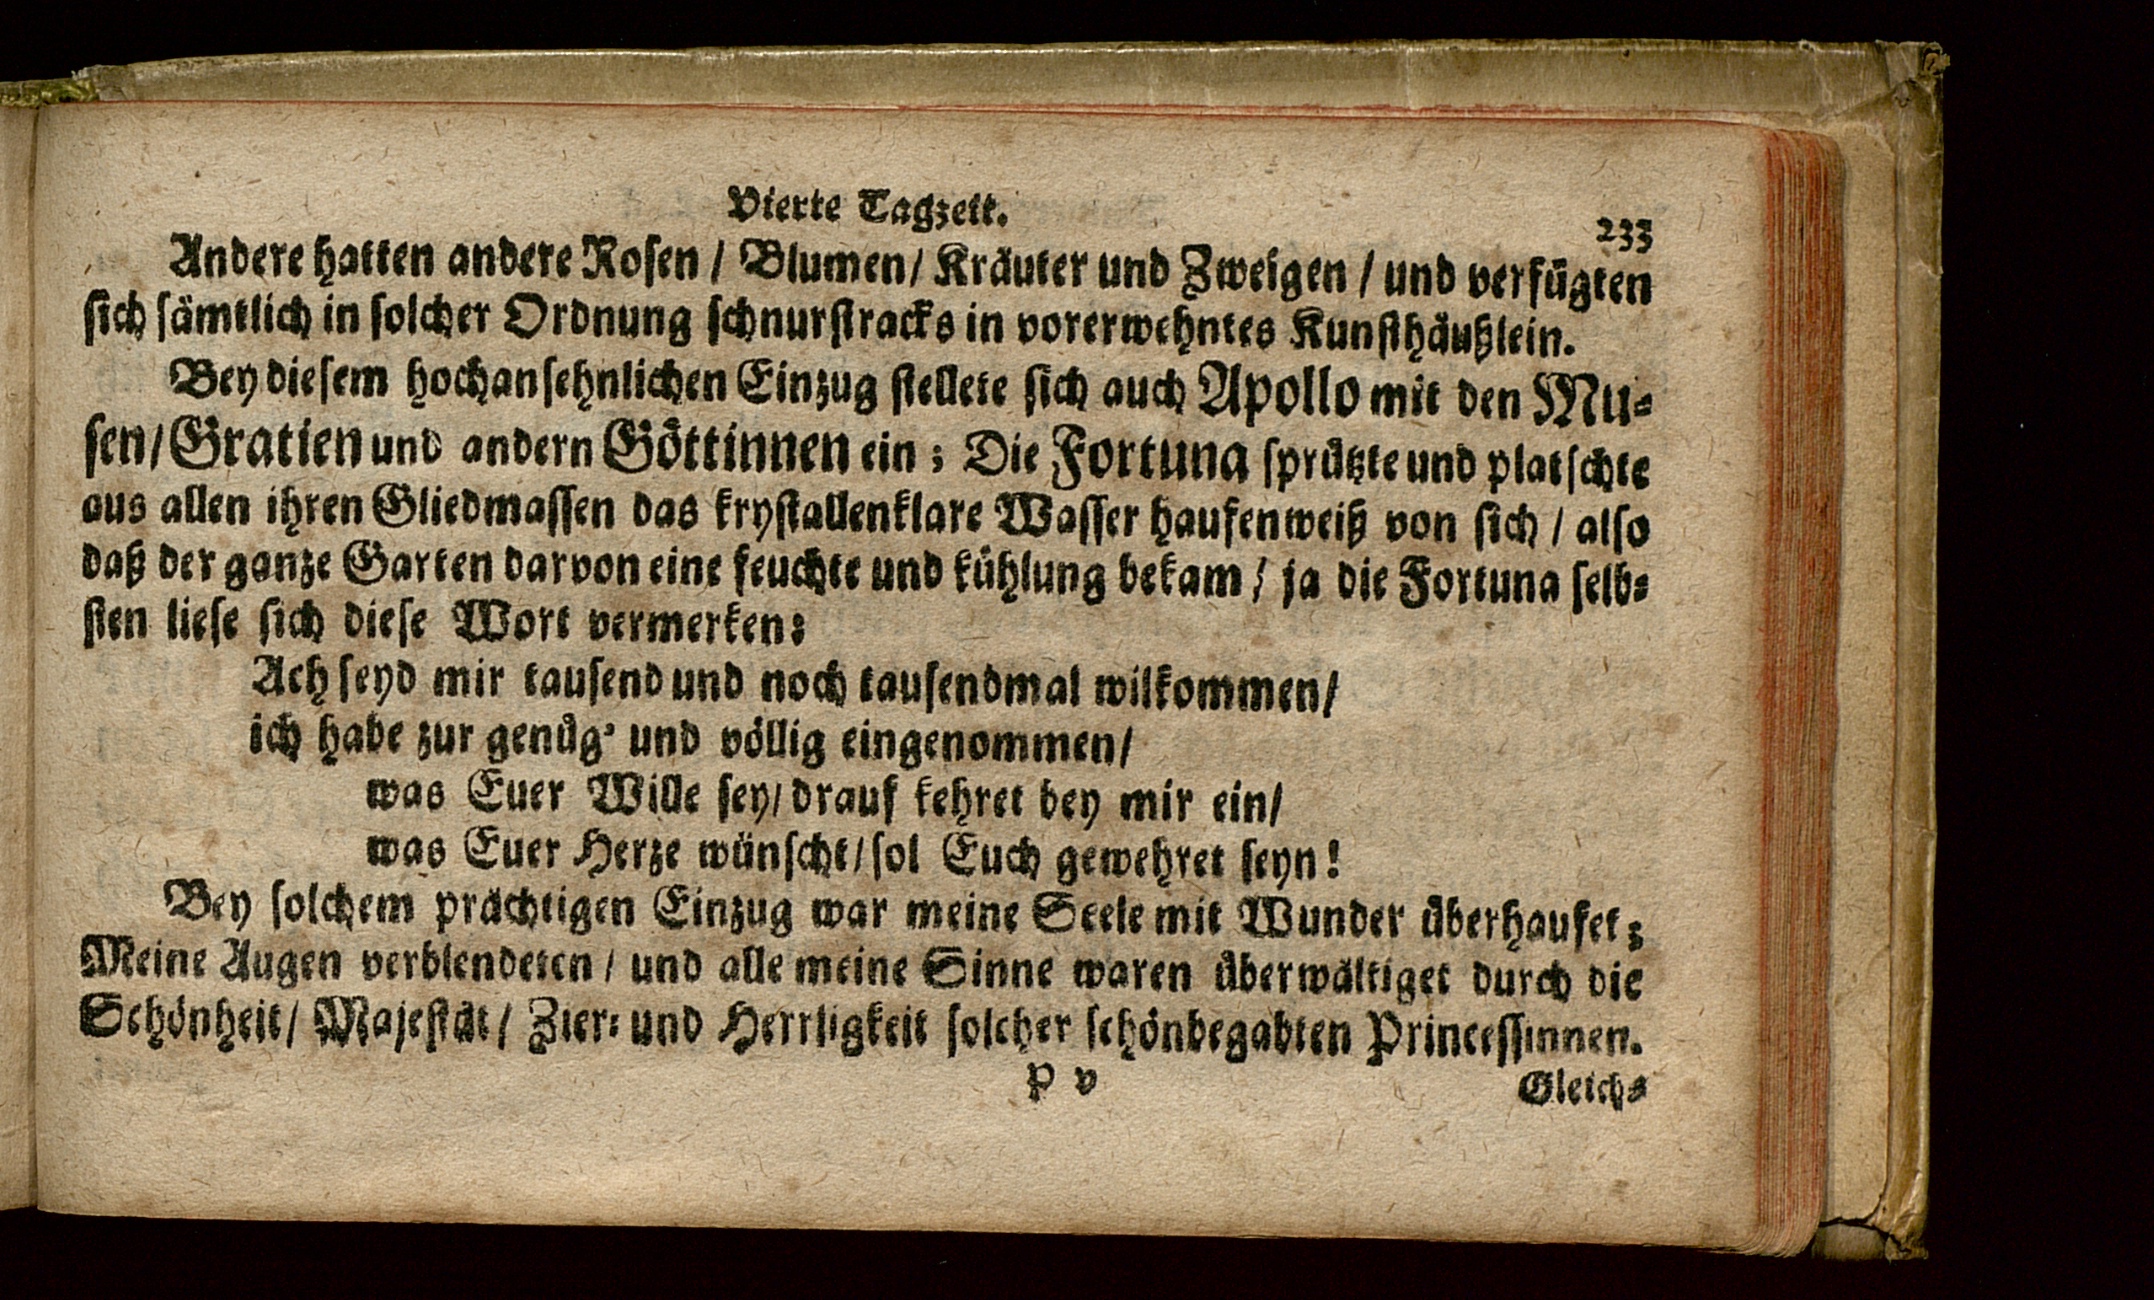 Vierte Tagzeit.
233
Andere hatten andere Rosen / Blumen / Kräuter und Zweigen / und verfügten
sich sämtlich in solcher Ordnung schnurstracks in vorerwehntes Kunsthäußlein.
Bey diesem hochansehnlichen Einzug stellete sich auch Apollo mit den Mu-
sen / Gratien und andern Göttinnen ein ; Die Fortuna sprützte und platschte
aus allen ihren Gliedmassen das krystallenklare Wasser haufenweiß von sich / also
daß der ganze Garten darvon eine feuchte und kühlung bekam / ja die Fortuna selb-
sten liese sich diese Wort vermerken:
Ach seyd mir tausend und noch tausendmal wilkommen /
ich habe zur genüg' und völlig eingenommen /
was Euer Wille sey / drauf kehret bey mir ein /
was Euer Herze wünscht / sol Euch gewehret seyn!
Bey solchem prächtigen Einzug war meine Seele mit Wunder überhaufet ;
Meine Augen verblendeten / und alle meine Sinne waren überwältiget durch die
Schönheit / Majestät / Zier- und Herrligkeit solcher schönbegabten Princessinnen.
P v
Gleich-